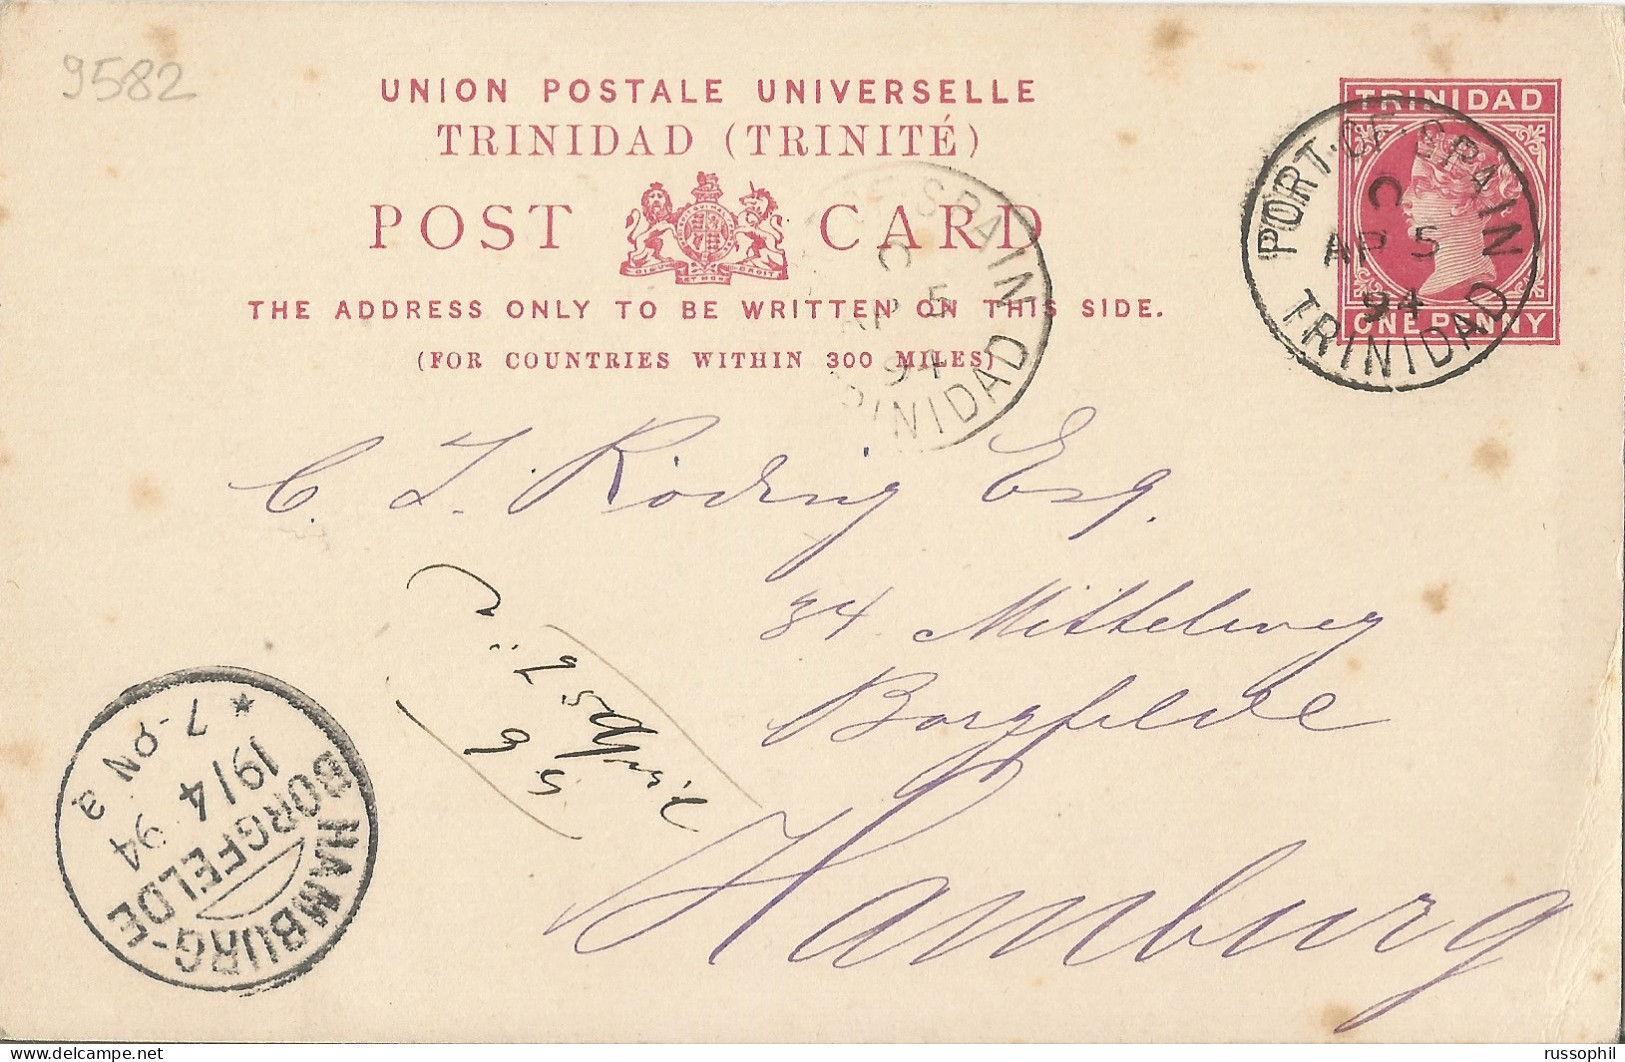 9582
UNION POSTALE UNIVERSELLE
TRINIDAD (TRINITÉ)
POST CARD
DIEU ET MON DROIT
THE ADDRESS ONLY TO BE WRITTEN ON THIS SIDE.
(FOR COUNTRIES WITHIN 300 MILES)
TRINIDAD
ONE PENNY
PORT-OF-SPAIN
C
AP 5
94
TRINIDAD
OF-SPAIN
C
AP 5
94
RINIDAD
Esq.
34 Mittelweg
Borgfelde
Hamburg
HAMBURG-
BORGFELDE
19/4 94
7-8N a
*
russophil